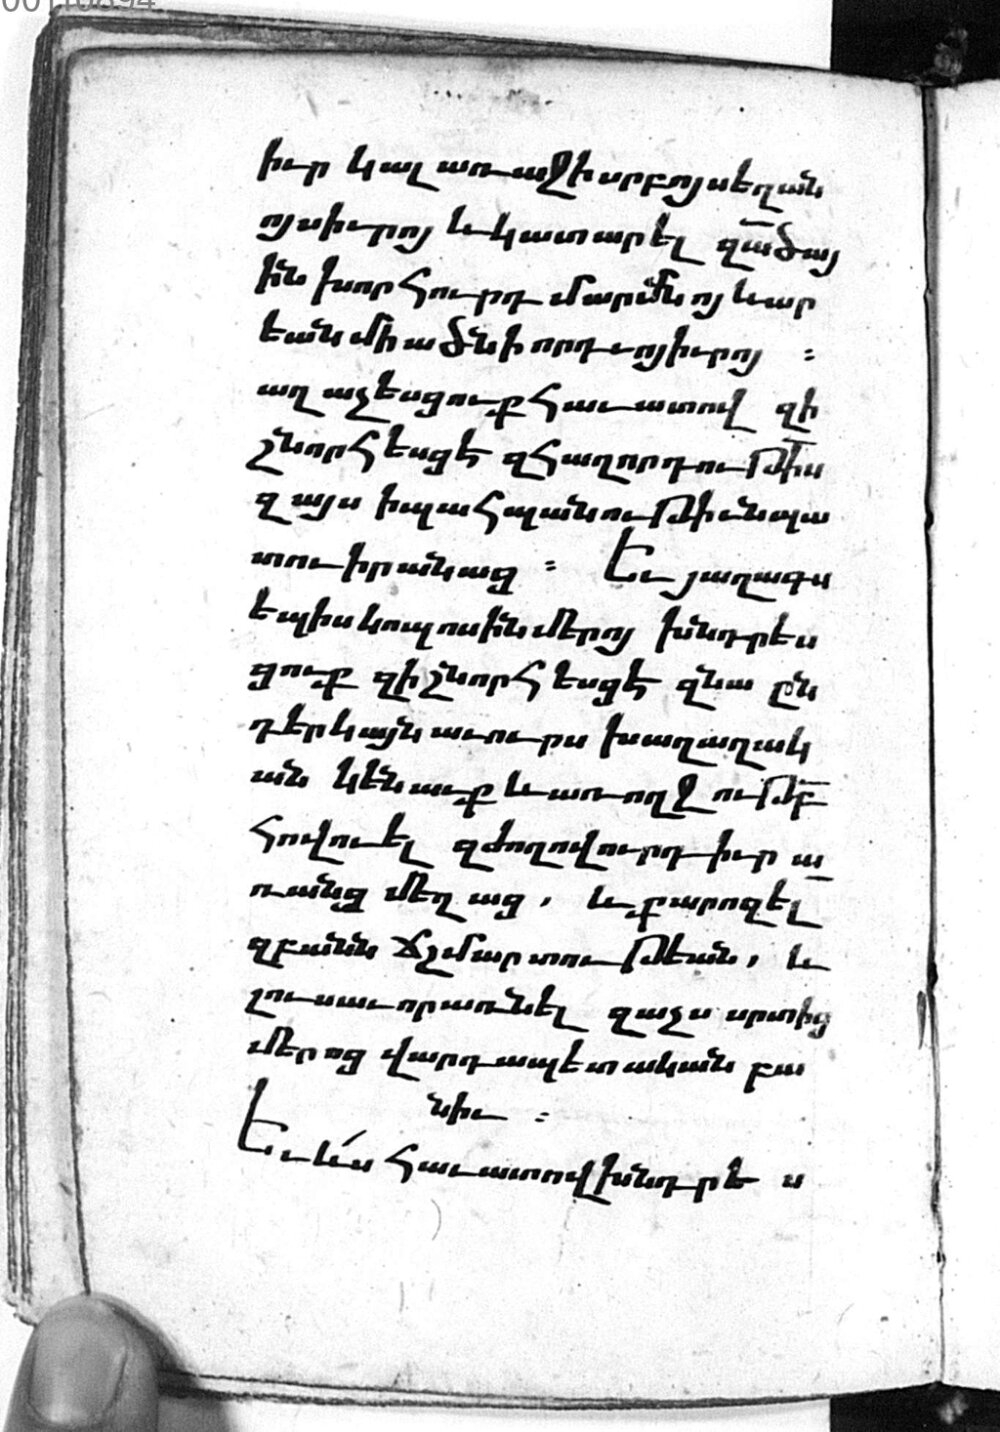 00110894
իւր կալ առաջի սրբոյ սեղան
ոյս իւրոյ և կատարել զած̄այ
ին խորհուրդ մարմնոյ և ար
եան միածնի որդւոյ իւրոյ ։
աղաչեսցուք հաւատով զի
շնորհեսցէ զհաղորդութի̄ս
զայս ի պահպանութիւն պա
տուիրանաց ։ Եւ յաղագս
եպիսկոպոսին մերոյ խնդրես
ցուք զի շնորհեսցէ զնա ընդ
երկայն աւուրս խաղաղակ
ան կենաւք և առողջութբ̄
հովուել զժողովուրդ իւր ա
ռանց մեղաց , և քարոզել
զբանն ճշմարտութեան , և
լուսաւորառնել զաչս սրտից
մերոց վարդապետական բա
նիւ ։
Եւ ևս հաւատով խնդրե ս